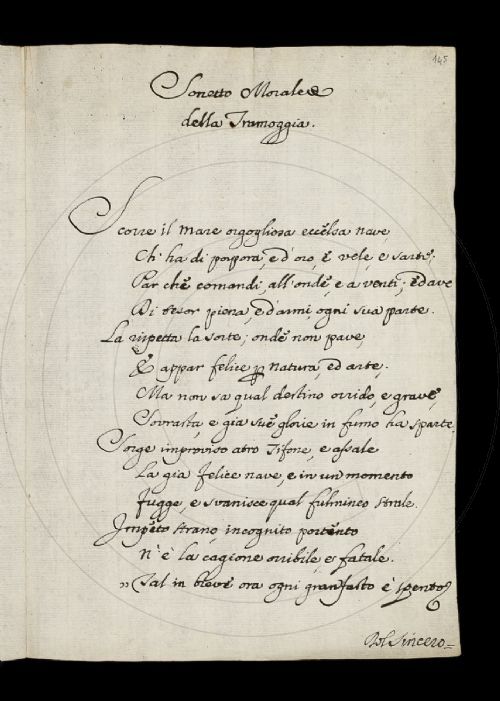 145
Sonetto Morale
della Tramoggia.
Scorre il mare orgogliosa eccelsa nave,
Ch' ha di porpora, e d'oro, e vele, e sarte;
Par che comandi all'onde, e a venti; ed ave
Di tesor piena, e d'armi, ogni sua parte.
La rispetta la sorte; onde non pave,
E appar felice p natura, ed arte.
Ma non sa qual destino orrido, e grave,
Sovrasta, e già sue glorie in fumo ha sparte.
Sorge improviso atro Tifone, e assale
La già felice nave, e in un momento
Fugge, e svanisce qual fulmineo strale.
Impeto strano, incognito portento
N' è la cagione orribile, e fatale.
" Tal in breve ora ogni gran fasto è spento
Del Sincero